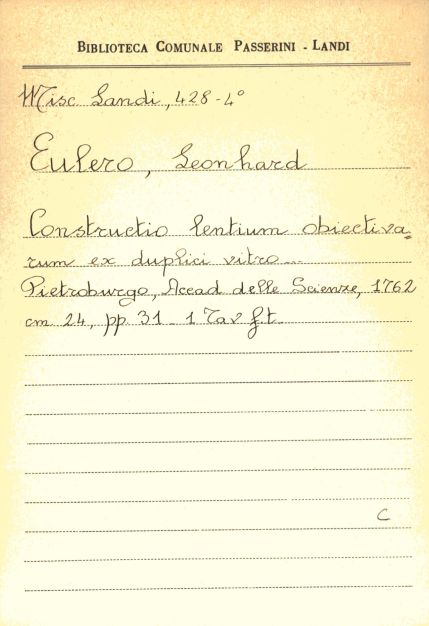 BIBLIOTECA COMUNALE PASSERINI - LANDI
Misc. Landi, 428-4°
Eulero, Leonhard
Constructio lentium obiectiva=
rum ex duplici vitro...
Pietroburgo, Accad. delle Scienze, 1762
cm. 24, pp. 31 - 1 Tav. f.t.
C